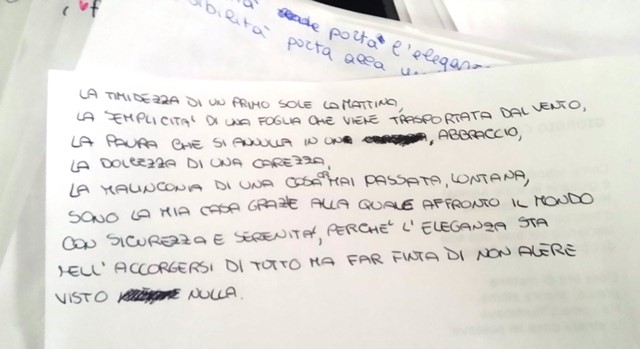 porta l'eleganz
ibilita' porta alla
LA TIMIDEZZA DI UN PRIMO SOLE LA MATTINO,
LA EMPLICITA' DI UNA FOGLIA CHE VIENE TRASPORTATA DAL VENTO,
LA PAURA CHE SI ANNULLA IN UN , ABBRACCIO,
LA DOLCEZZA DI UNA CAREZZA,
LA MALINCONIA DI UNA COSA ORMAI PASSATA, LONTANA,
SONO LA MIA CASA GRAZIE ALLA QUALE AFFRONTO IL MONDO
CON SICUREZZA E SERENITA', PERCHE' L'ELEGANZA STA
NELL'ACCORGERSI DI TUTTO MA FAR FINTA DI NON AVERE
VISTO NULLA.